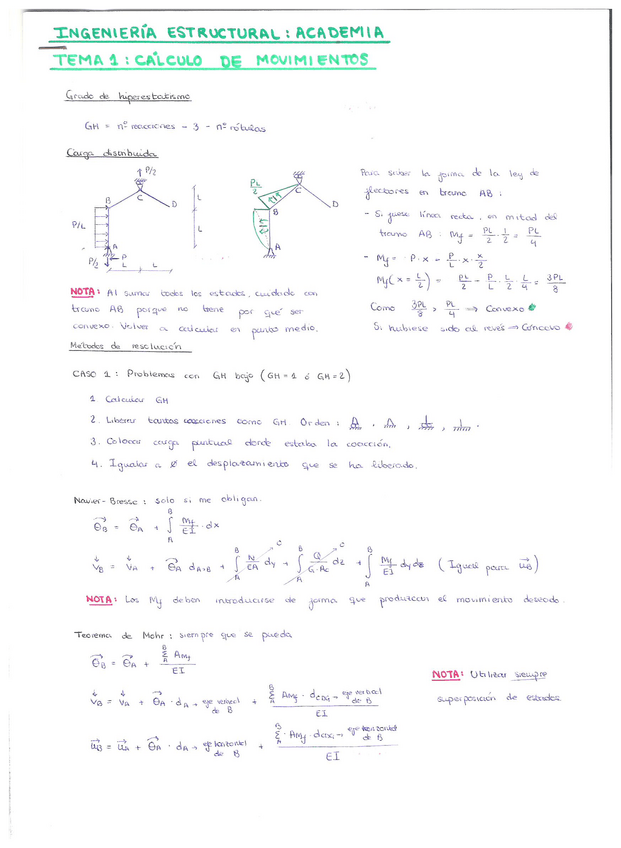 INGENIERÍA ESTRUCTURAL: ACADEMIA
TEMA 1: CÁLCULO DE MOVIMIENTOS
Grado de hiperestatismo
GH = nº reacciones - 3 - nº rótulas
Carga distribuida
P/2
B
C
D
P/L
A
P/2
P
L
L
L
L
PL/2
C
D
B
A
Para saber la forma de la ley de
flectores en tramo AB:
- Si fuese línea recta, en mitad del
tramo AB: Mf = PL/2 · 1/2 = PL/4
- Mf = P·x - P/L · x · x/2
Mf(x = L/2) = PL/2 - P/L · L/2 · L/4 = 3PL/8
Como 3PL/8 > PL/4 ⟹ Convexo
Si hubiese sido al revés ⟹ Cóncavo
NOTA: Al sumar todos los estados, cuidado con
tramo AB porque no tiene por qué ser
convexo. Volver a calcular en punto medio.
Métodos de resolución
CASO 1: Problemas con GH bajo (GH=1 ó GH=2)
1 Calcular GH
2. Liberar tantas coacciones como GH Orden:
3. Colocar carga puntual donde estaba la coacción.
4. Igualar a ∅ el desplazamiento que se ha liberado.
Navier-Bresse: solo si me obligan.
θB = θA + ∫ Mf/EI · dx
VB = VA + θA dA→B + ∫ N/EA dy + ∫ Q/G·Ac dz + ∫ Mf/EI dy dz (Igual para uB)
NOTA: Los Mf deben introducirse de forma que produzcan el movimiento deseado.
Teorema de Mohr: siempre que se pueda
θB = θA + Σ AMf / EI
VB = VA + θA · dA→ eje vertical de B + Σ AMf · dCDG→ eje vertical de B / EI
uB = uA + θA · dA→ eje horizontal de B + Σ AMf · dCDG→ eje horizontal de B / EI
NOTA: Utilizar siempre
superposición de estados